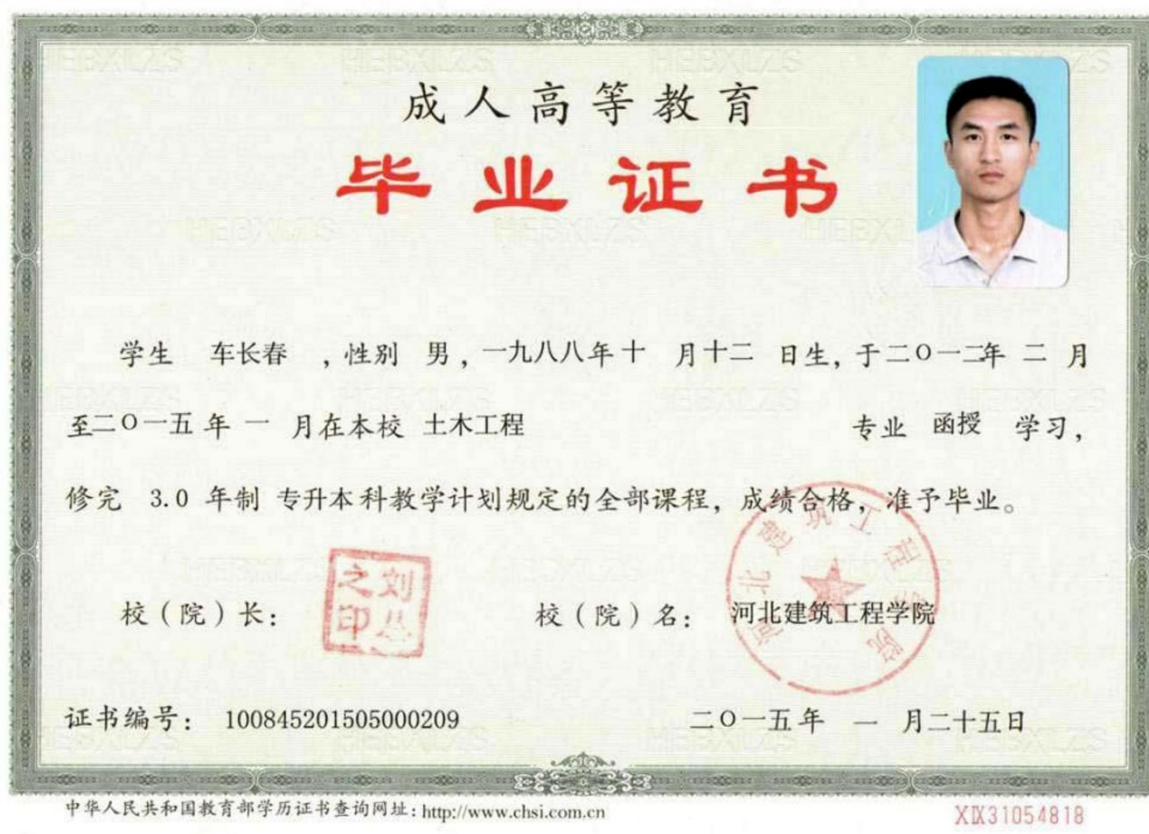 成人高等教育
毕业证书
学生 车长春 ，性别 男，一九八八年十 月十二 日生，于二〇一二年 二 月
至二〇一五年 一 月在本校 土木工程 专业 函授 学习，
修完 3.0 年制 专升本科教学计划规定的全部课程，成绩合格，准予毕业。
河北建筑工程学院
刘丛之印
校（院）长： 校（院）名： 河北建筑工程学院
证书编号： 100845201505000209 二〇一五年 一 月二十五日
中华人民共和国教育部学历证书查询网址：http://www.chsi.com.cn
XIX31054818